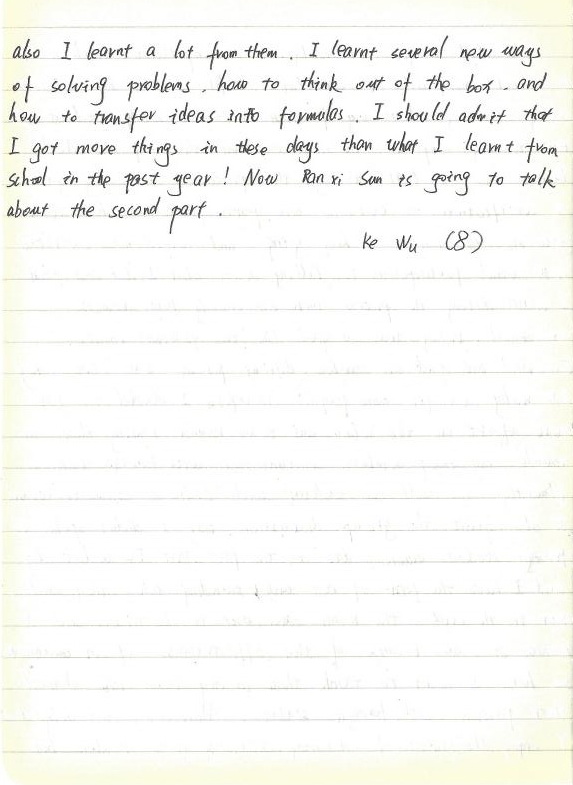 also I learnt a lot from them. I learnt several new ways
of solving problems, how to think out of the box, and
how to transfer ideas into formulas. I should admit that
I got more things in these days than what I learnt from
school in the past year! Now Ran xi Sun is going to talk
about the second part.
Ke Wu (8)